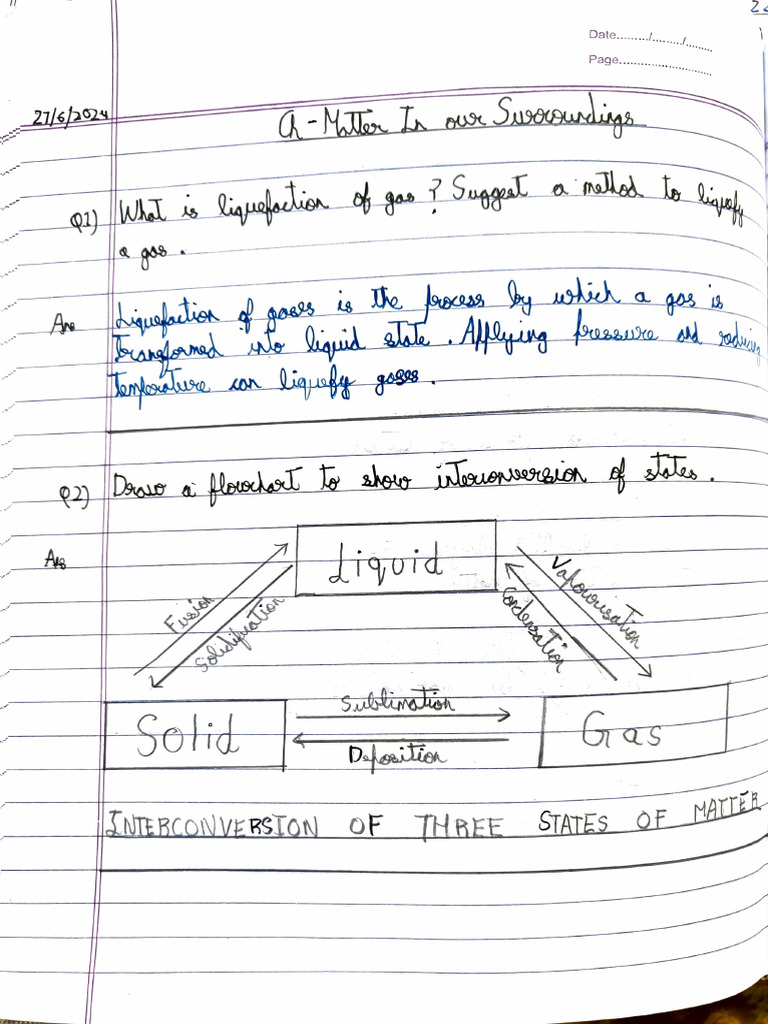 Date......../......../........
Page............................
27/6/2024
Ch - Matter In our Surroundings
Q1) What is liquefaction of gas? Suggest a method to liquefy
a gas.
Ans Liquefaction of gases is the process by which a gas is
transformed into liquid state. Applying pressure and reducing
temperature can liquefy gases.
Q2) Draw a flowchart to show interconversion of states.
Ans
Liquid
Fusion
Solidification
Vapourisation
Condensation
Solid
Sublimation
Deposition
Gas
INTERCONVERSION OF THREE STATES OF MATTER